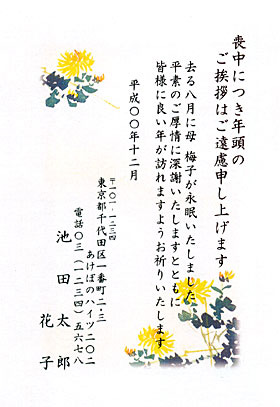 喪中につき年頭の
ご挨拶はご遠慮申し上げます
去る八月に母 梅子が永眠いたしました
平素のご厚情に深謝いたしますとともに
皆様に良い年が訪れますようお祈りいたします
平成〇〇年十二月
〒一〇一-一二三四
東京都千代田区一番町二-三
あけぼのハイツ二〇二
電話〇三(一二三四)五六七八
池田太郎
花子